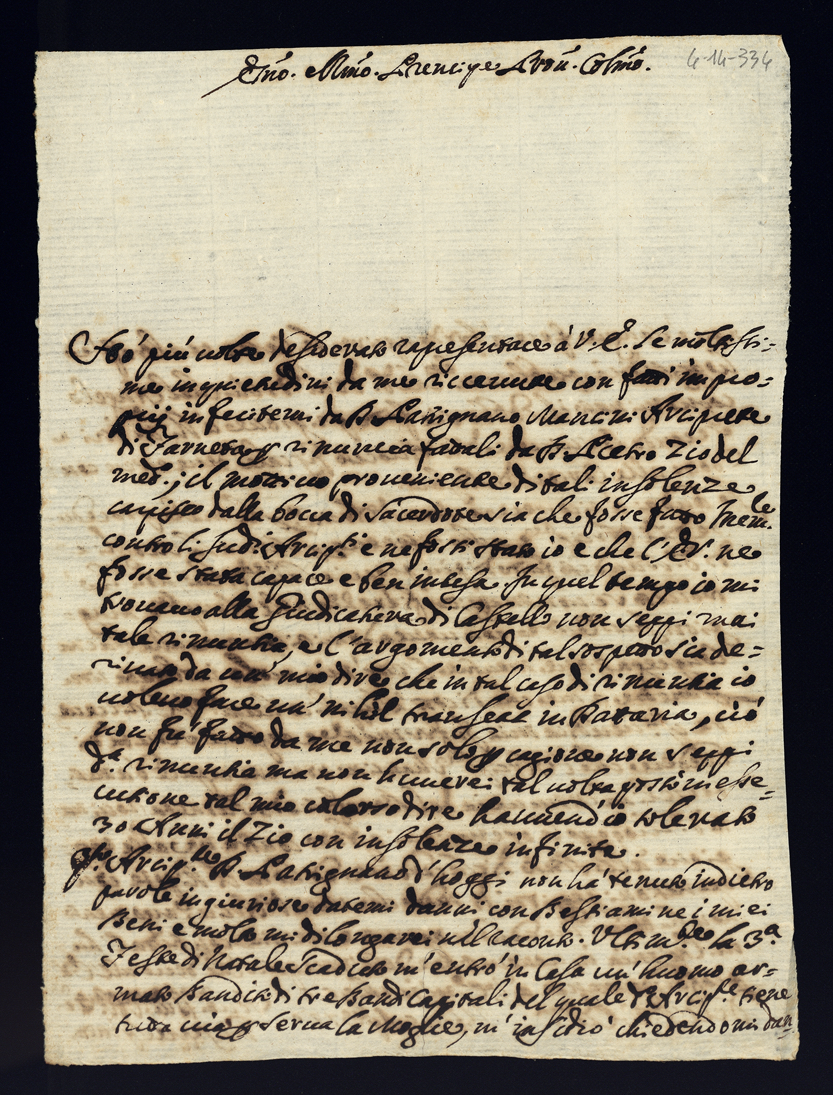 Ecc.mo Ill.mo Prencipe Pron. Colmo.
4-14-334
Hò più volte desiderato rapresentare à V. E. le moltissi=
me inquietudini da me riceuute con fatti impro=
prij inferitemi da D. Latignano Mancini Arciprete
di Farneta p rinuncia fatali da D. Pietro Zio del
med.; il motiuo proueniente di tali insolenze
capisco dalla bocca di sacerdote sia che fosse fatto mem.le
contro li sudi Arcip.ti e ne fossi stato io e che l'E.V. ne
fosse stata capace e ben intesa. In quel tempo io mi
trouauo alla Giudicatura di Castello non seppi mai
tale rinuntia, e l'argomento di tal sospetto sia de=
riuato da un' mio dire che in tal caso di rinuntia io
uoleuo fare un' nihil transeat in Dataria, ciò
non fù fatto da me non solo p cagione non seppi
d.a rinuntia ma non hauerei tal uolta posto in esse=
cutione tal mio colorso dire hauendo io tolerato
30 Anni il Zio con insolenze infinite.
Arcip.te D. Latignano d'hoggi non hà tenuto indietro
parole ingiuriose datemi danni con Bestiami ne i miei
Beni e molto mi dilongarei nel raconto. Vltim.te la 3.a
Feste di Natale Scadute m'entrò in Casa un' huomo ar=
mato Bandito di tre Bandi Capitali del quale d. Arcip.te tiene
tuttauia p serua la Moglie, m' insidiò chiedendomi dan=